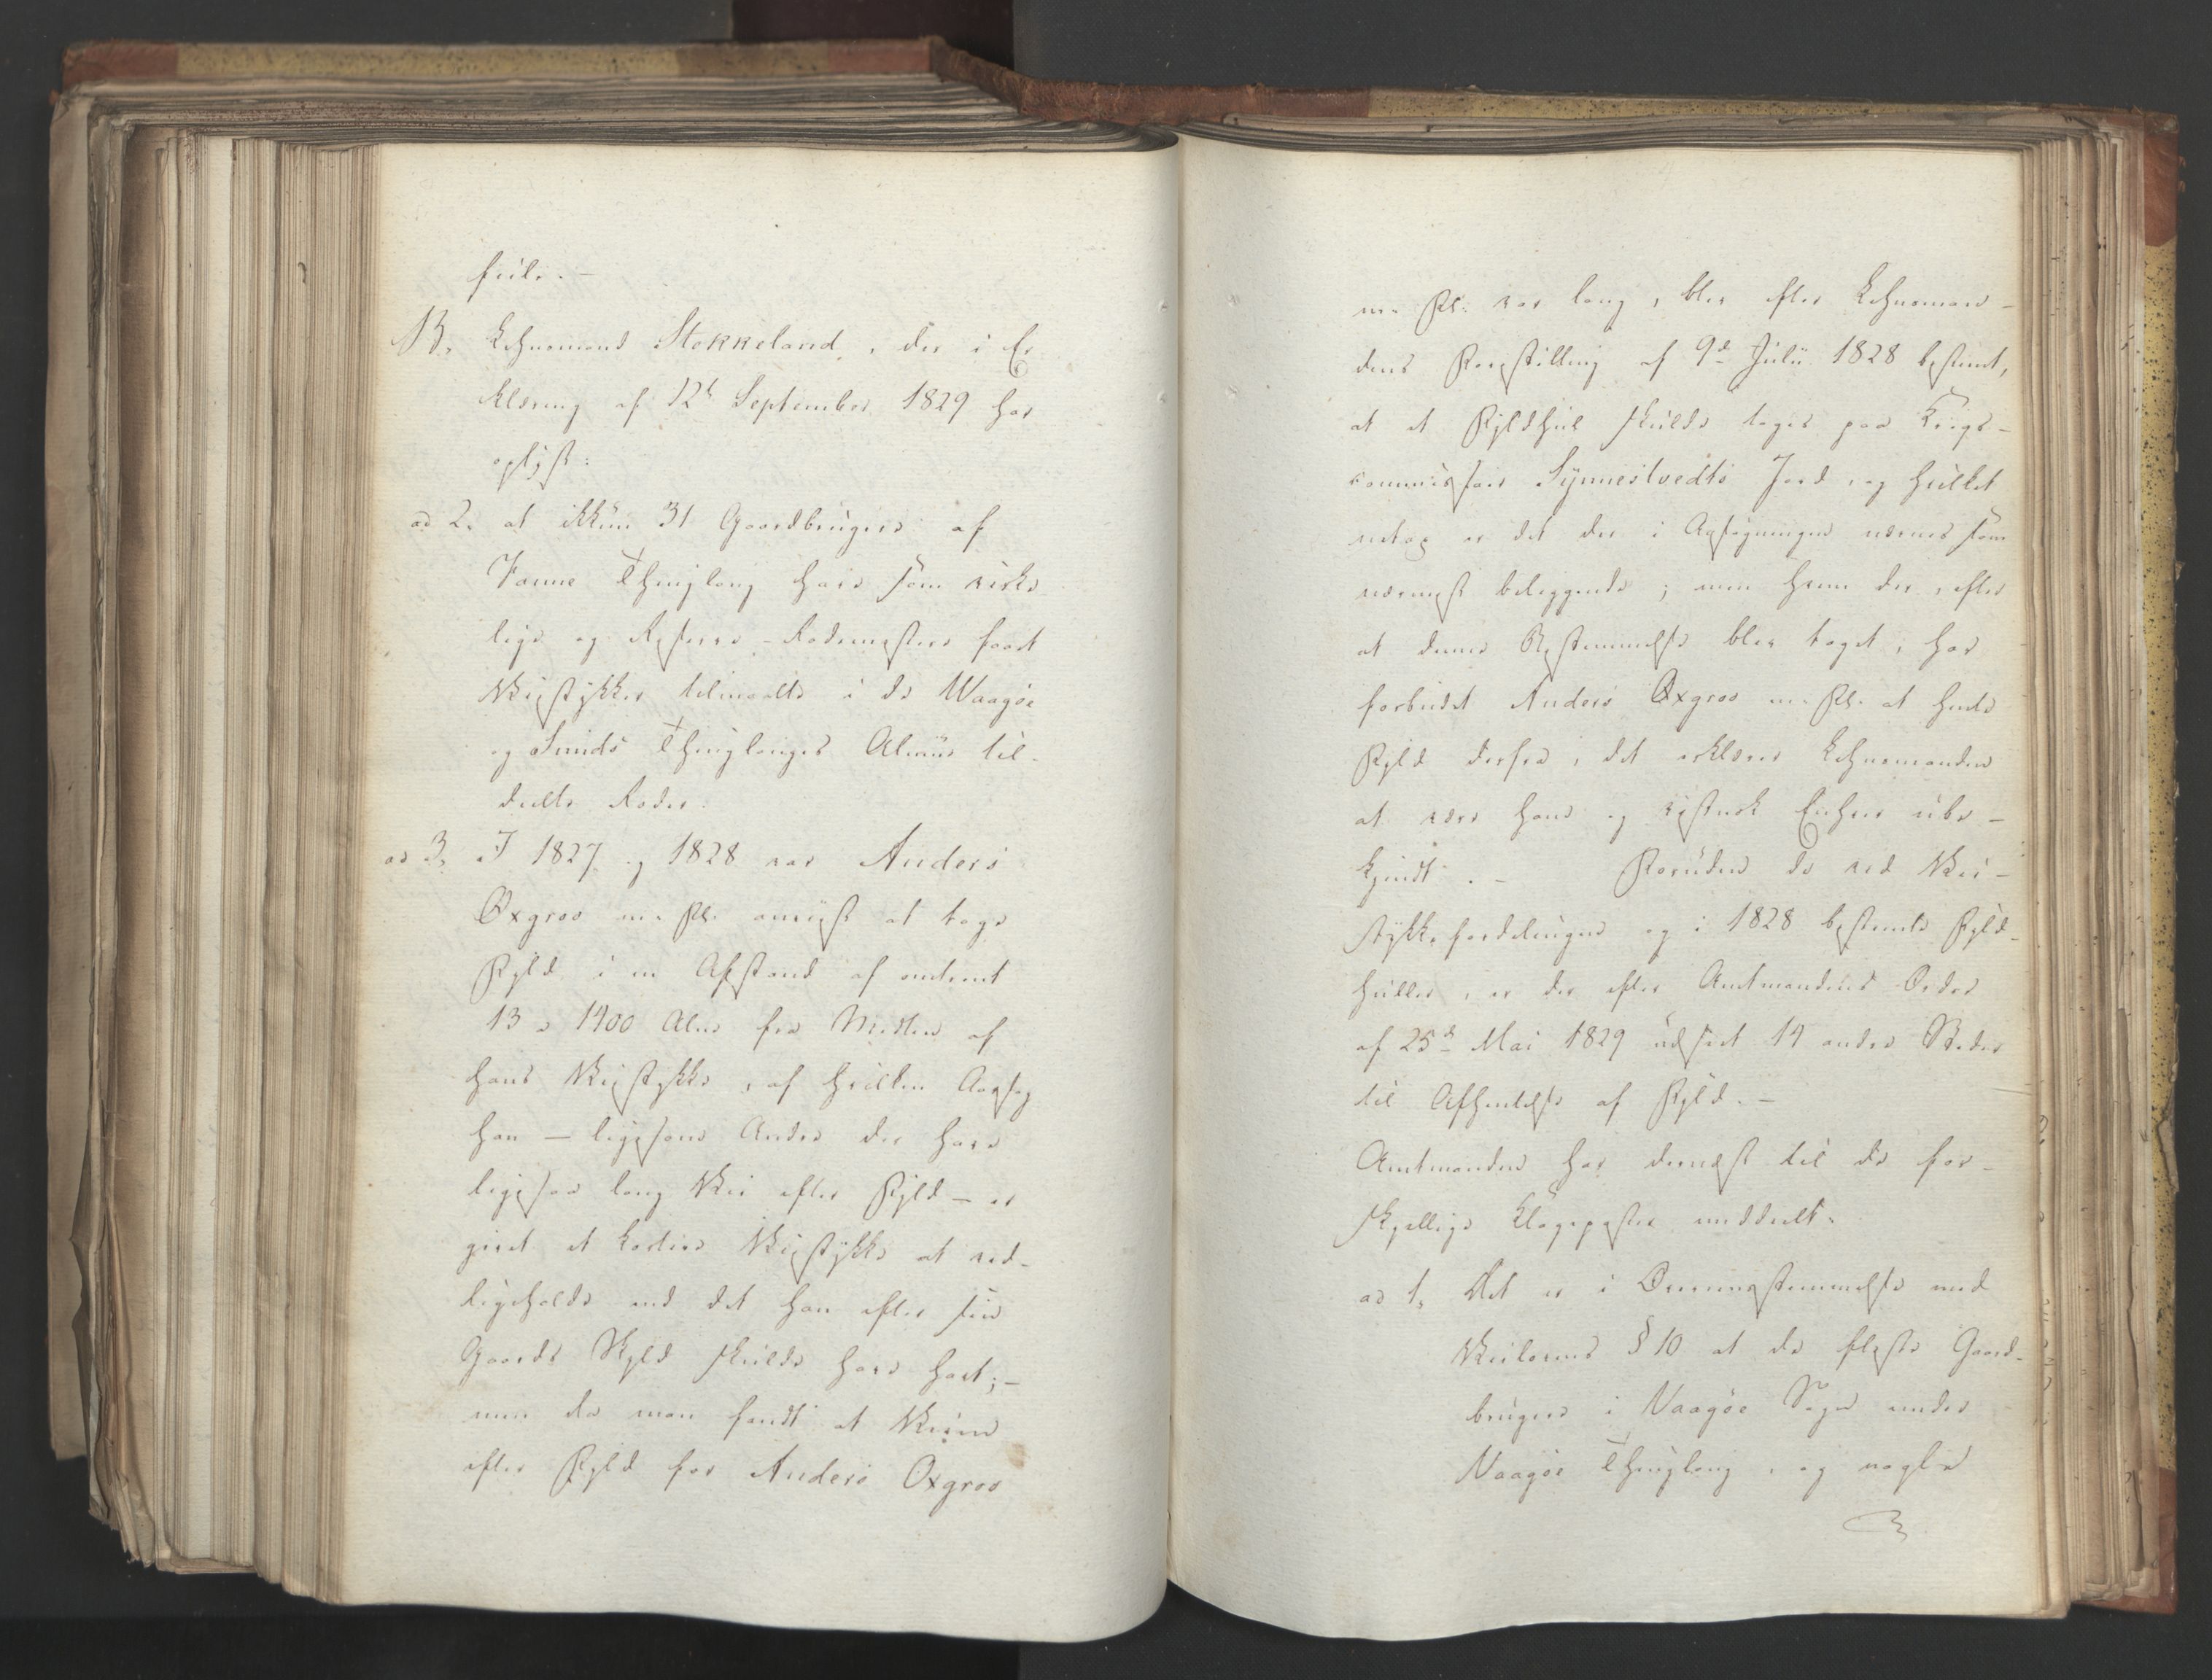 feile. —
B, Lehnsmand Stokkeland, der i Er
klæring af 12te September 1829 har
oplyst:
ad 2, at ikkun 31 Gaardbrugere af
Vanne Thinglaug have som virke
lige og Reserve-Rodemestere faaet
Veistykker tilmaalte i de Waagøe
og Sunds Thinglauges Almue til-
deelte Roder.
ad 3, I 1827 og 1828 var Anders
Oxgroo m. Fl. anviist at tage
Fyld i en Afstand af omtrent
13 a 1400 Alne fra Midten af
hans Veistykke, af hvilken Aarsag
han — ligesom Andre der have
ligesaa lang Vei efter Fyld — er
givet et kortere Veistykke at ved-
ligeholde end det han efter sin
Gaards Skyld skulde have havt; —
men da man fandt at Veien
efter Fyld for Anders Oxgroo
m. Fl. var lang, blev efter Lehnsman-
dens Forestilling af 9de Julii 1828 bestemt,
at et Fyldhul skulde tages paa Krigs-
commissair Synnestvedts Jord, og hvilket
netop er det der i Ansøgningen nævnes som
nærmest beliggende; men hvem der, efter
at denne Bestemmelse blev taget, har
forbudet Anders Oxgroo m. Fl. at hente
Fyld derfra, det erklærer Lehnsmanden
at være ham og vistnok Enhver ube-
kjendt. — Foruden de ved Vei-
stykkefordelingen og i 1828 bestemte Fyld-
huller, er der efter Amtmandens Ordre
af 25de Mai 1829 udseet 14 andre Steder
til Afhentelse af Fyld. —
Amtmanden har dernæst til de for-
skjellige Klageposter meddeelt:
ad 1, Det er i Overeensstemmelse med
Veilovens § 10 at de fleste Gaard-
brugere i Vaagøe Sogn under
Vaagøe Thinglaug, og nogle